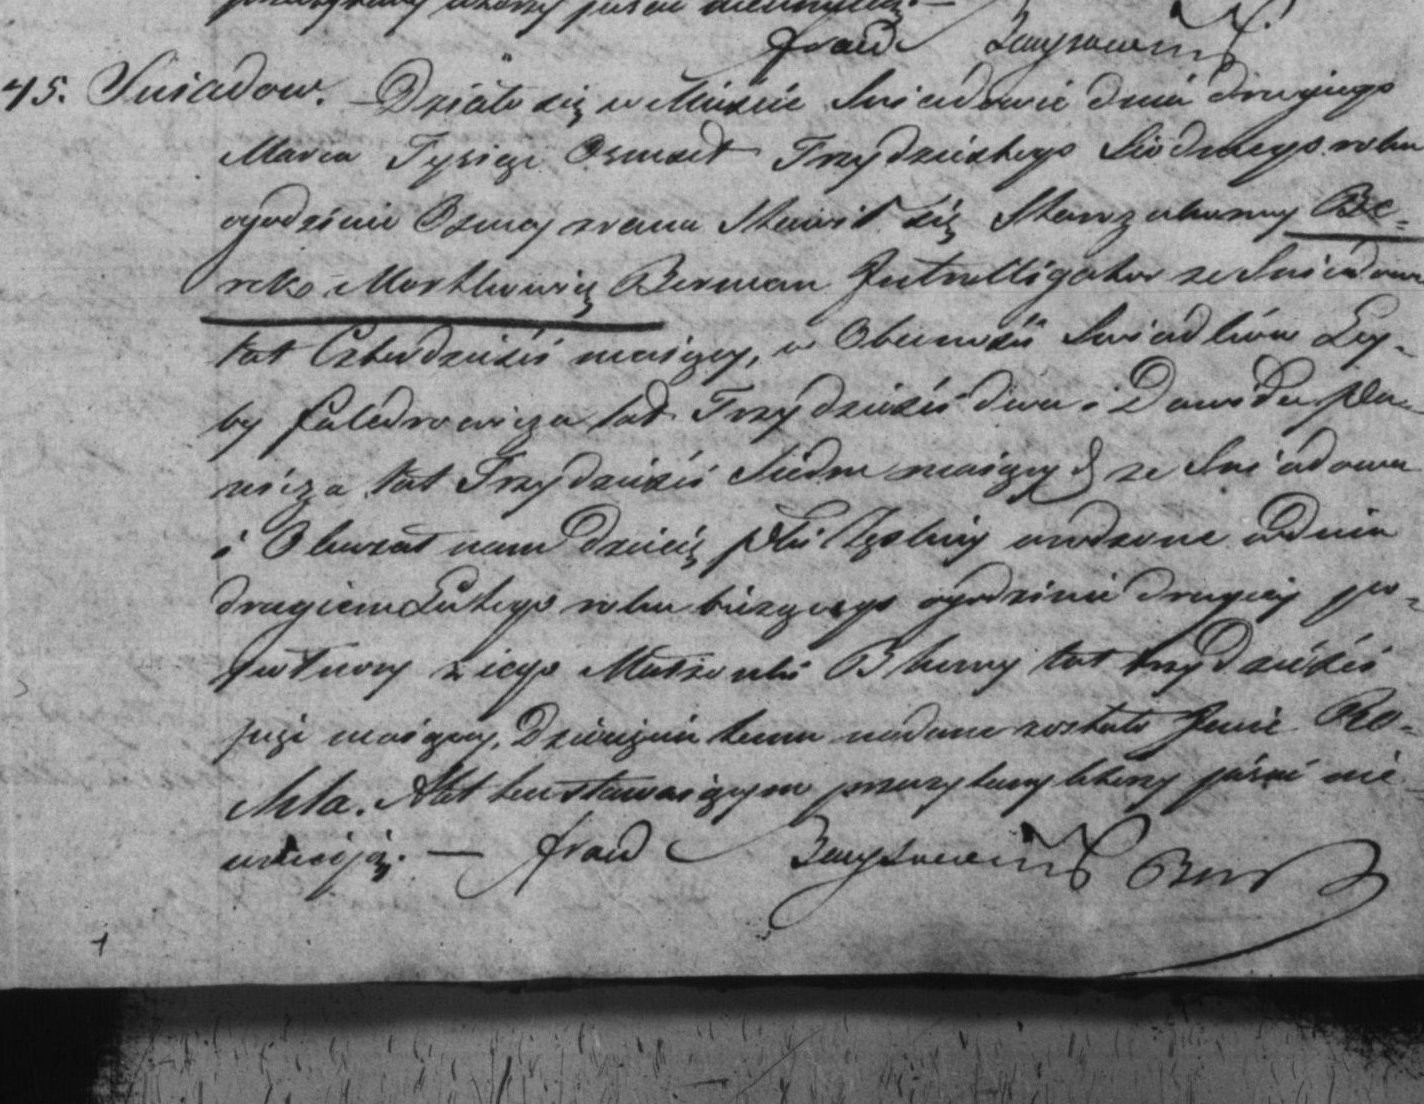 45. Sniadow. – Działo się w Mieście Sniadowie dnia drugiego
Marca Tysiąc Osmset Trzydziestego Siódmego roku
o godzinie Osmej z rana Stawił się Starozakonny Be=
rko Berman Introlligator ze Sniadowa
lat Czterdzieści maiący, w Obecności Swiadków Ley-
by lat Trzydzieści dwa i Dawida
lat Trzydzieści Siedm maiących ze Sniadowa
i Okazał nam dziecię płci Żeńskiej urodzone w dniu
drugiem Lutego roku bieżącego o godzinie drugiej po=
północy z iego Małżonki lat trzydzieści
pięć maiącey, Dziecięciu temu nadane zostało Imie Ro=
chla. Akt ten stawaiącym przeczytany którzy pisać nie
umieją. —